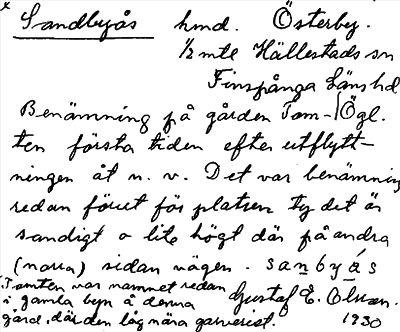 x Sandbyås hmd. Österby.
1/2 mtl Hällestads sn
Finspånga Länshd
Ögl.
Benämning på gården Tom-
ten första tiden efter utflytt-
ningen åt n. v. Det var benämning
redan förut för platsen ty det är
sandigt o lite högt där på andra
(norra) sidan vägen. sanbyås
Tomten var namnet redan
i gamla byn å denna
gård, där den låg nära
Gustaf E. Olsson.
1930